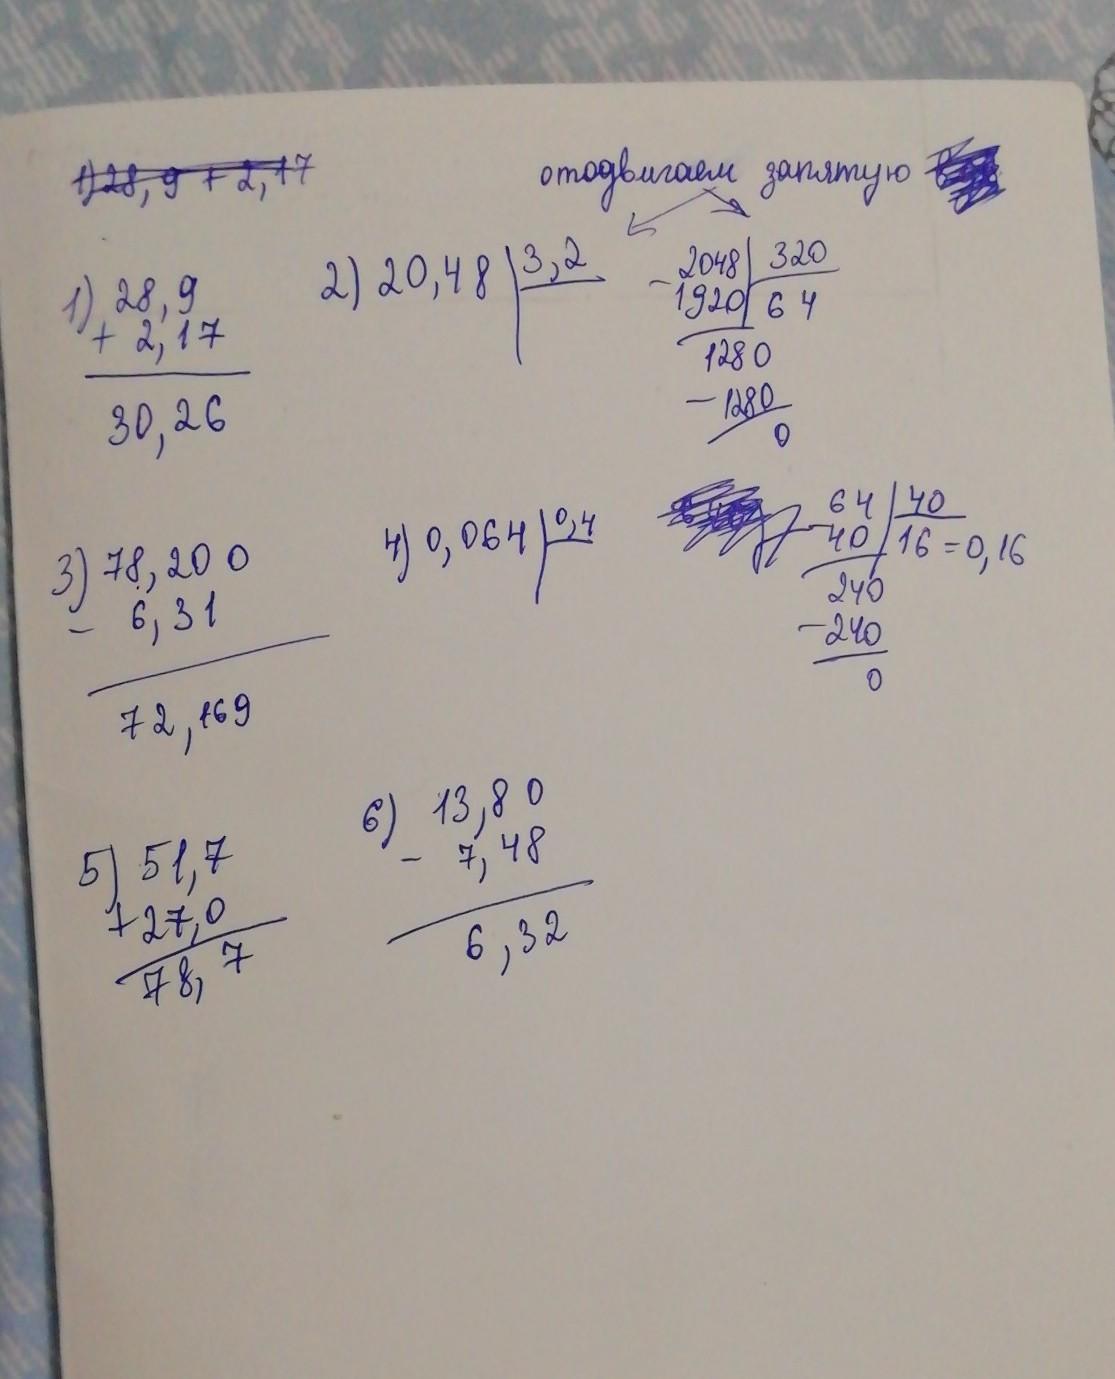 1) 28,9 + 2,17
отодвигаем запятую
1) 28,9
+ 2,17
30,26
2) 20,48 | 3,2
- 2048 | 320
1920 | 64
1280
- 1280
0
3) 78,200
- 6,31
72,169
4) 0,064 | 0,4
64 | 40
- 40 | 16 = 0,16
240
- 240
0
5) 51,7
+ 27,0
78,7
6) 13,80
- 7,48
6,32